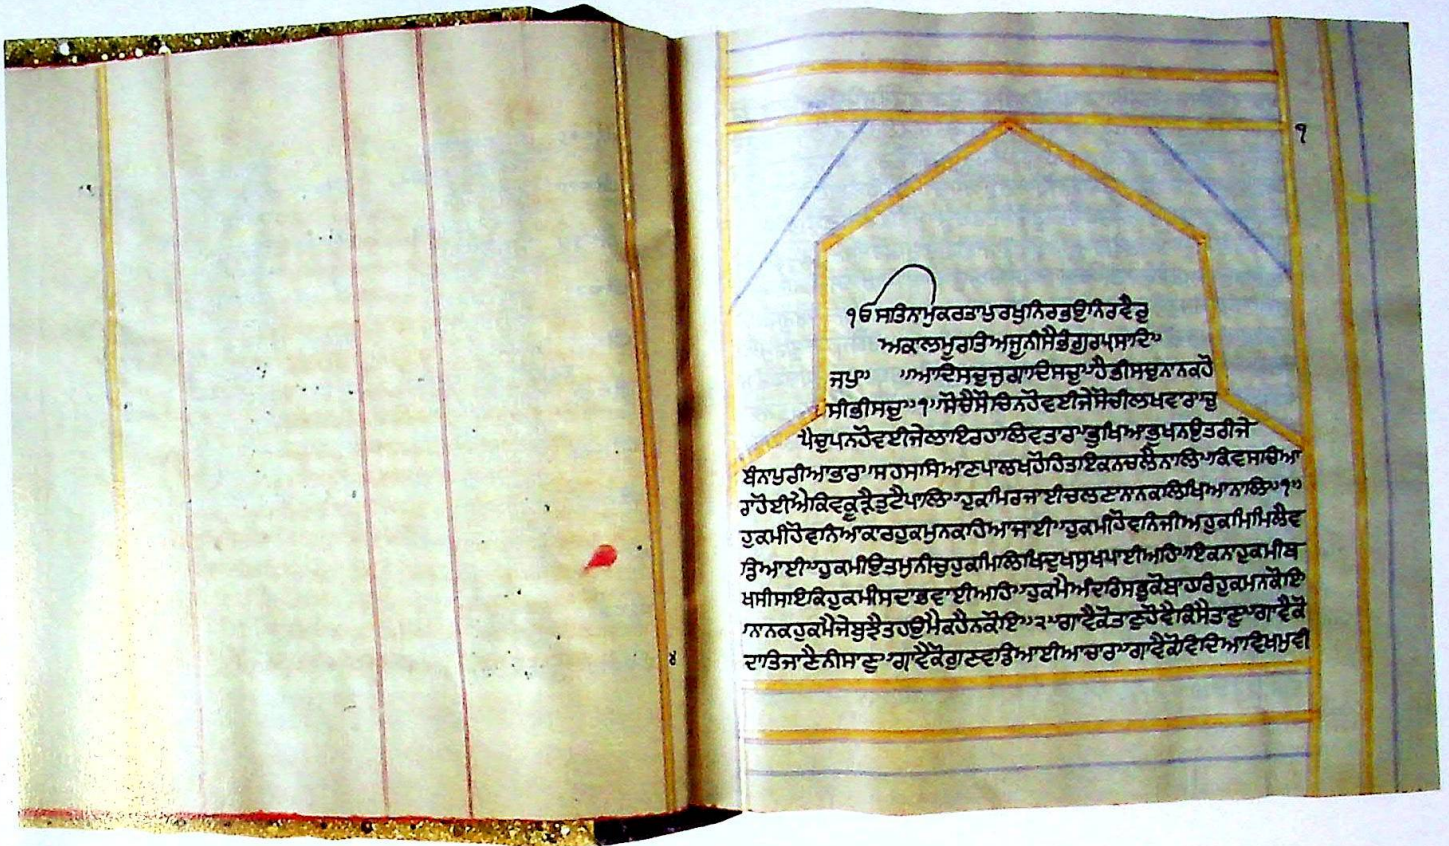 ੧
੧ਓ ਸਤਿਨਾਮੁਕਰਤਾਪੁਰਖੁਨਿਰਭਉਨਿਰਵੈਰੁ
ਅਕਾਲਮੂਰਤਿਅਜੂਨੀਸੈਭੰਗੁਰਪ੍ਰਸਾਦਿ॥
ਜਪੁ॥ ॥ਆਦਿਸਚੁਜੁਗਾਦਿਸਚੁ॥ਹੈਭੀਸਚੁਨਾਨਕਹੋ
ਸੀਭੀਸਚੁ॥੧॥ਸੋਚੈਸੋਚਿਨਹੋਵਈਜੇਸੋਚੀਲਖਵਾਰ॥ਚੁ
ਪੈਚੁਪਨਹੋਵਈਜੇਲਾਇਰਹਾਲਿਵਤਾਰ॥ਭੁਖਿਆਭੁਖਨਉਤਰੀਜੇ
ਬੰਨਾਪੁਰੀਆਭਾਰ॥ਸਹਸਸਿਆਣਪਾਲਖਹੋਹਿਤਾਇਕਨਚਲੈਨਾਲਿ॥ਕਿਵਸਚਿਆ
ਰਾਹੋਈਐਕਿਵਕੂੜੈਤੁਟੈਪਾਲਿ॥ਹੁਕਮਿਰਜਾਈਚਲਣਾਨਾਨਕਲਿਖਿਆਨਾਲਿ॥੧॥
ਹੁਕਮੀਹੋਵਨਿਆਕਾਰਹੁਕਮੁਨਕਹਿਆਜਾਈ॥ਹੁਕਮੀਹੋਵਨਿਜੀਅਹੁਕਮਿਮਿਲੈਵ
ਡਿਆਈ॥ਹੁਕਮੀਉਤਮੁਨੀਚੁਹੁਕਮਿਲਿਖਿਦੁਖਸੁਖਪਾਈਅਹਿ॥ਇਕਨਾਹੁਕਮੀਬ
ਖਸੀਸਇਕਿਹੁਕਮੀਸਦਾਭਵਾਈਅਹਿ॥ਹੁਕਮੈਅੰਦਰਿਸਭੁਕੋਬਾਹਰਿਹੁਕਮਨਕੋਇ
॥ਨਾਨਕਹੁਕਮੈਜੇਬੁਝੈਤਹਉਮੈਕਹੈਨਕੋਇ॥੨॥ਗਾਵੈਕੋਤਾਣੁਹੋਵੈਕਿਸੈਤਾਣੁ॥ਗਾਵੈਕੋ
ਦਾਤਿਜਾਣੈਨੀਸਾਣੁ॥ਗਾਵੈਕੋਗੁਣਵਡਿਆਈਆਚਾਰ॥ਗਾਵੈਕੋਵਿਦਿਆਵਿਖਮੁਵੀ